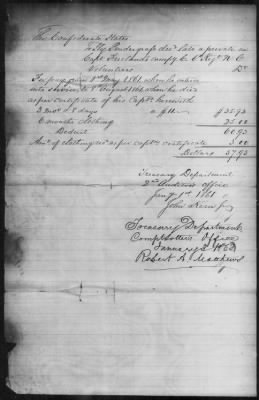 The Confederate States
To Wm Pendergrass dec'd late a private in
Capt Freeland's Compy C 6 Regt N C
Volunteers Dr
To pay from 1st May 1861 when he
into service to 8th August 1861 when he died
as per certificate of his Captn herewith
3 mos & 8 days a $11 $35.93
6 months clothing 25.00
60.93
Deduct
Amt of clothing rec'd as per capt's certificate 3.00
Dollars 57.93
Treasury Department
2nd Auditors office
Jany 1st 1861
John
Treasury Department
Comptrollers Office
January
Robert A. Matthews